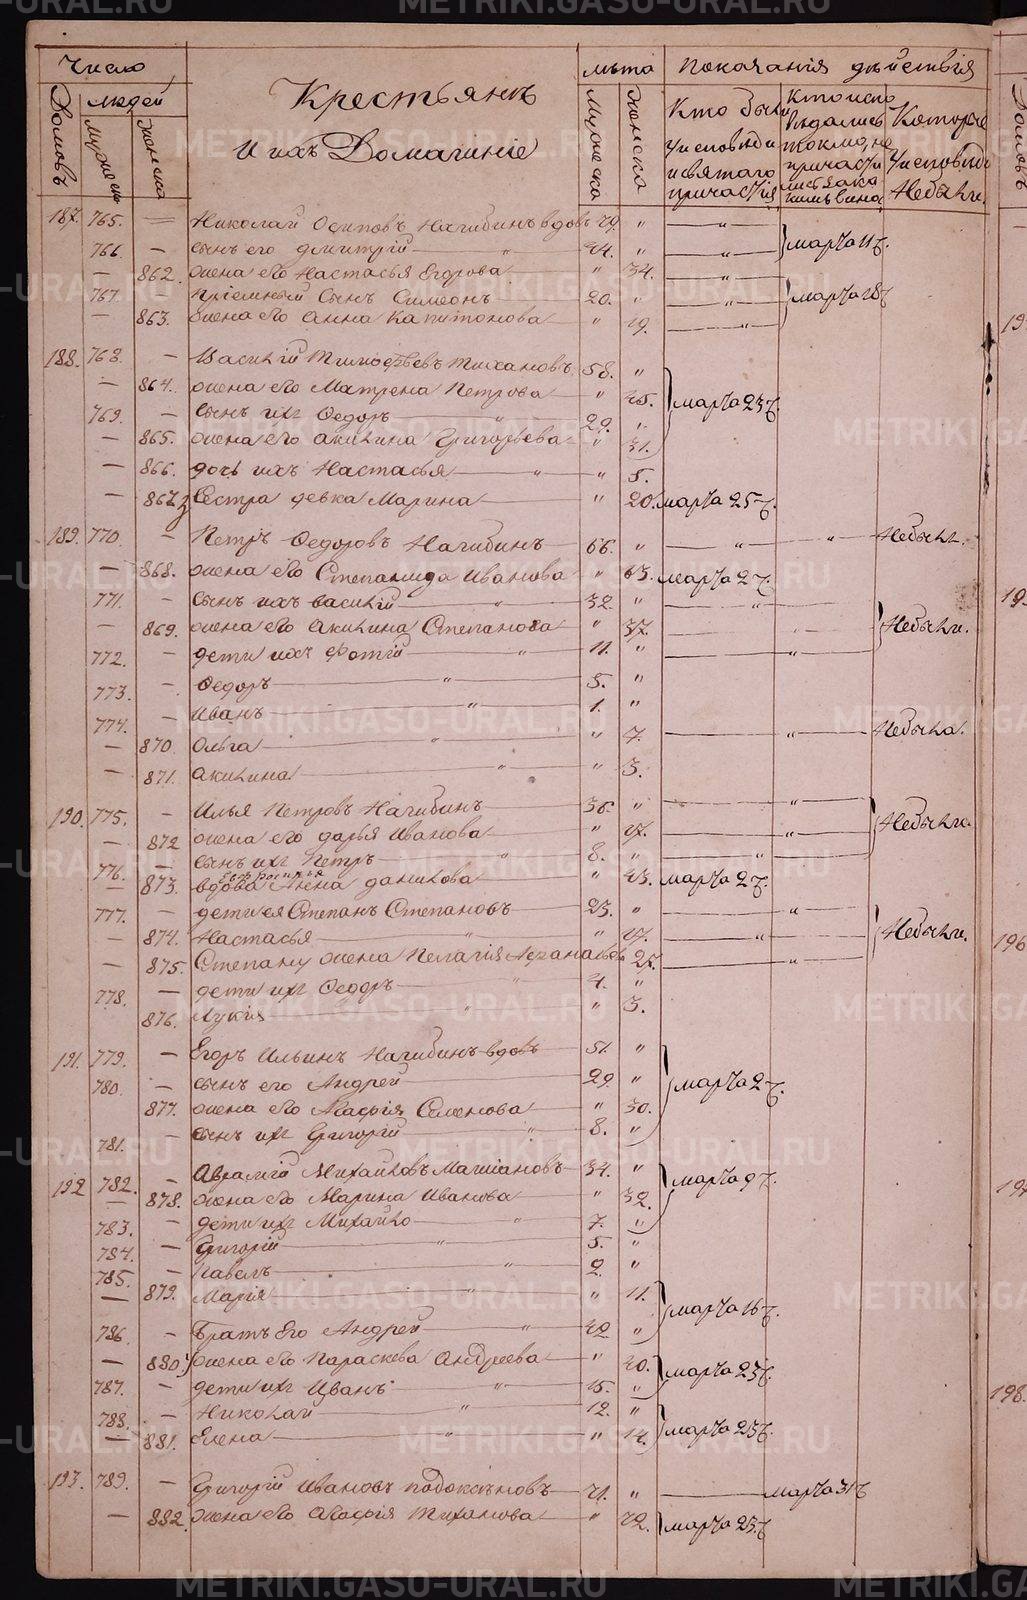 Число
людей
Домовъ
Мужеска
Женска
Крестьянъ
И ихъ Домашніе
Лѣта
Мужеска
Женска
Показанія дѣйствія
Кто были у исповѣди и святаго причастія
Которые у исповѣди небыли.
187. 765. Николай Осиповъ Нагибинъ вдовъ „
766. — сынъ его Дмитрій 44. „ „ } марта
— 862. жена его Настасья Егорова „ 34. „
767. — Пріемный сынъ Симеонъ 20. „ „ } марта
— 863. жена его Анна Капитонова „ 19. „
188. 768. — Василій Тимофѣевъ Тихановъ 58. „
— 864. жена его Матрена Петрова „ 45. } марта 23
769. — сынъ ихъ Ѳедоръ „ 29. „
— 865. жена его Акилина Григорьева „ 31.
— 866. дочь ихъ Настасья „ „ 5.
— 867. Сестра девка Марина „ 20. марта 25
189. 770. — Петръ Ѳедоровъ Нагибинъ 66. „ „ „ Небылъ.
— 868. жена его Степанида Иванова „ 63. марта 2
771. — сынъ ихъ Василій „ 32. „ „
— 869. жена его Акилина Степанова „ 37. „ } Небыли.
772. — дети ихъ Фотій „ 11. „ „
773. — Ѳедоръ „ 5. „
774. — Иванъ „ 1. „
— 870. Ольга „ „ 7. „ Небыла.
— 871. Акилина „ „ 3.
190. 775. — Илья Петровъ Нагибинъ 36. „ „
— 872 жена его Дарья Иванова „ „ } Небыли.
776. — сынъ ихъ Петръ „ 8. „ „
— 873. вдова Анна Данилова „ 43. марта 2
777. — дети ея Степанъ Степановъ 23. „ „
— 874. Настасья „ „ 17. „ } Небыли.
— 875. Степану жена Пелагія 25. „
778. — дети ихъ Ѳедоръ „ 4. „
876. Лукія „ „ 3.
191. 779. — Егоръ Ильинъ Нагибинъ вдовъ 51. „
780. — сынъ его Андрей 29 „ } марта 2
877. жена его Агафія Семенова „ 30.
781. — сынъ ихъ Григорій „ 8. „
192 782. — Аврамій Михайловъ 34. „ } марта 9
— 878. жена его Марина Иванова „ 32.
783. — дети ихъ Михайло „ 7. „
784. — Григорій „ 5. „
785. — Павелъ „ 2 „
— 879. Марія „ „ 11.
} марта 16
786. — Братъ его Андрей „ 42 „
— 880. жена его Параскева Андреева „ 40. } марта 23
787. — дети ихъ Иванъ „ 15. „
788. — Николай „ 12. „ } марта 25
— 881. Елена „ „ 14.
193. 789. — Григорій Ивановъ „ марта 31
— 882. жена его Агафія Тиханова „ 72. } марта 23
METRIKI.GASO-URAL.RU